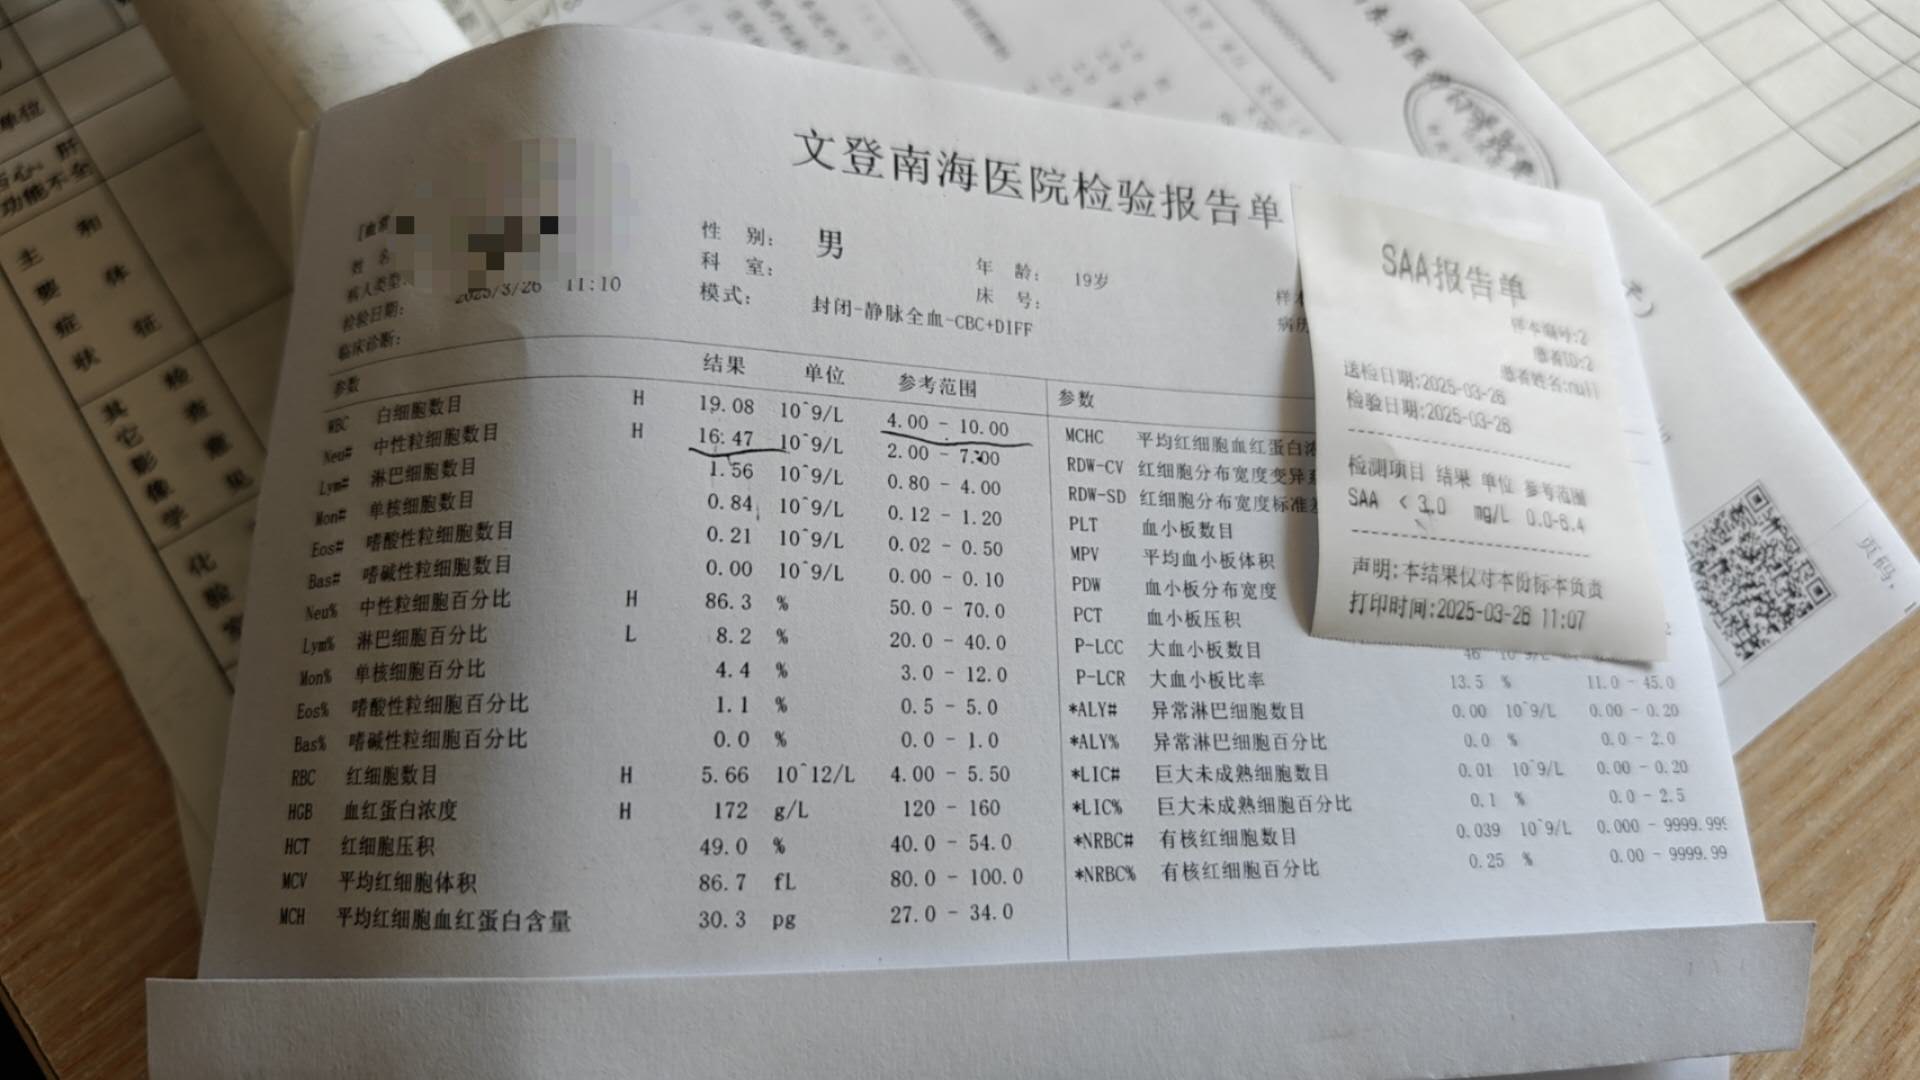 文登南海医院检验报告单
姓 名
性 别: 男
年 龄: 19岁
病人类型:
科 室:
床 号:
检验日期: 2025/3/26 11:10
模式: 封闭-静脉全血-CBC+DIFF
临床诊断:
参数 结果 单位 参考范围
WBC 白细胞数目 H 19.08 10^9/L 4.00 - 10.00
Neu# 中性粒细胞数目 H 16.47 10^9/L 2.00 - 7.00
Lym# 淋巴细胞数目 1.56 10^9/L 0.80 - 4.00
Mon# 单核细胞数目 0.84 10^9/L 0.12 - 1.20
Eos# 嗜酸性粒细胞数目 0.21 10^9/L 0.02 - 0.50
Bas# 嗜碱性粒细胞数目 0.00 10^9/L 0.00 - 0.10
Neu% 中性粒细胞百分比 H 86.3 % 50.0 - 70.0
Lym% 淋巴细胞百分比 L 8.2 % 20.0 - 40.0
Mon% 单核细胞百分比 4.4 % 3.0 - 12.0
Eos% 嗜酸性粒细胞百分比 1.1 % 0.5 - 5.0
Bas% 嗜碱性粒细胞百分比 0.0 % 0.0 - 1.0
RBC 红细胞数目 H 5.66 10^12/L 4.00 - 5.50
HGB 血红蛋白浓度 H 172 g/L 120 - 160
HCT 红细胞压积 49.0 % 40.0 - 54.0
MCV 平均红细胞体积 86.7 fL 80.0 - 100.0
MCH 平均红细胞血红蛋白含量 30.3 pg 27.0 - 34.0
参数
MCHC 平均红细胞血红蛋白浓
RDW-CV 红细胞分布宽度变异系
RDW-SD 红细胞分布宽度标准差
PLT 血小板数目
MPV 平均血小板体积
PDW 血小板分布宽度
PCT 血小板压积
P-LCC 大血小板数目 46 10^9/L
P-LCR 大血小板比率 13.5 % 11.0 - 45.0
*ALY# 异常淋巴细胞数目 0.00 10^9/L 0.00 - 0.20
*ALY% 异常淋巴细胞百分比 0.0 % 0.0 - 2.0
*LIC# 巨大未成熟细胞数目 0.01 10^9/L 0.00 - 0.20
*LIC% 巨大未成熟细胞百分比 0.1 % 0.0 - 2.5
*NRBC# 有核红细胞数目 0.039 10^9/L 0.000 - 9999.999
*NRBC% 有核红细胞百分比 0.25 % 0.00 - 9999.99
SAA报告单
样本编号:2
患者ID:2
患者姓名:null
送检日期:2025-03-26
检验日期:2025-03-26
检测项目 结果 单位 参考范围
SAA < 3.0 mg/L 0.0-6.4
声明:本结果仅对本份标本负责
打印时间:2025-03-26 11:07
页码,
单位
功能不全
主要症状
和体征
其它影像学
检查意见
化验